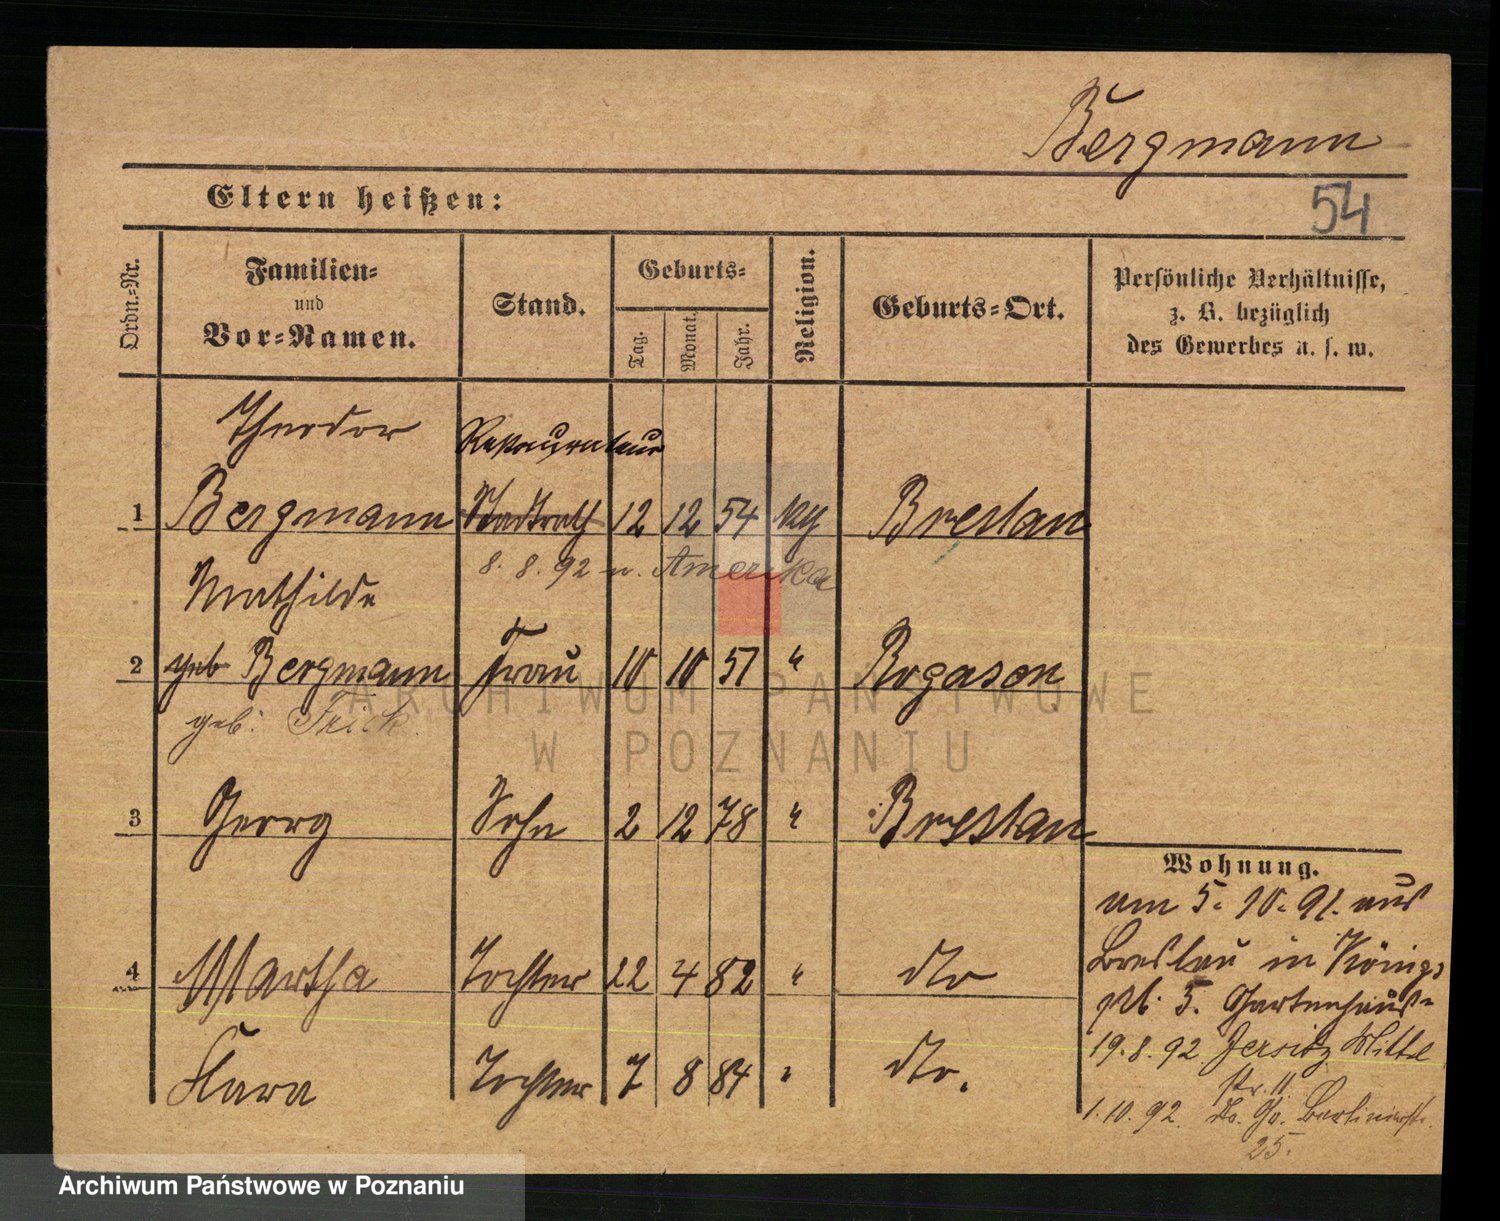 Bergmann
54
Eltern heißen:
Ordn.-Nr.
Familien-
und
Vor-Namen.
Stand.
Geburts-
Tag.
Monat.
Jahr.
Religion.
Geburts-Ort.
Persönliche Verhältnisse,
z. B. bezüglich
des Gewerbes u. s. w.
Theodor
Restaurateur
1 Bergmann Stadtrath 12 12 54 Breslau
8. 8. 92 n. Amerika
Mathilde
2 geb Bergmann Frau 10 10 57 " Rogasen
geb. Frick
3 Georg Sohn 2 12 78 " Breslau
4 Martha Tochter 22 4 82 " dto
Klara Tochter 7 8 84 " dto.
Wohnung.
am 5. 10. 91. aus
Breslau in Königs
pl. 5. Gartenhaus-
19. 8. 92 Jersitz Mittel
str. 11
1. 10. 92. Berlinerstr.
25.
ARCHIWUM PAŃSTWOWE
W POZNANIU
Archiwum Państwowe w Poznaniu